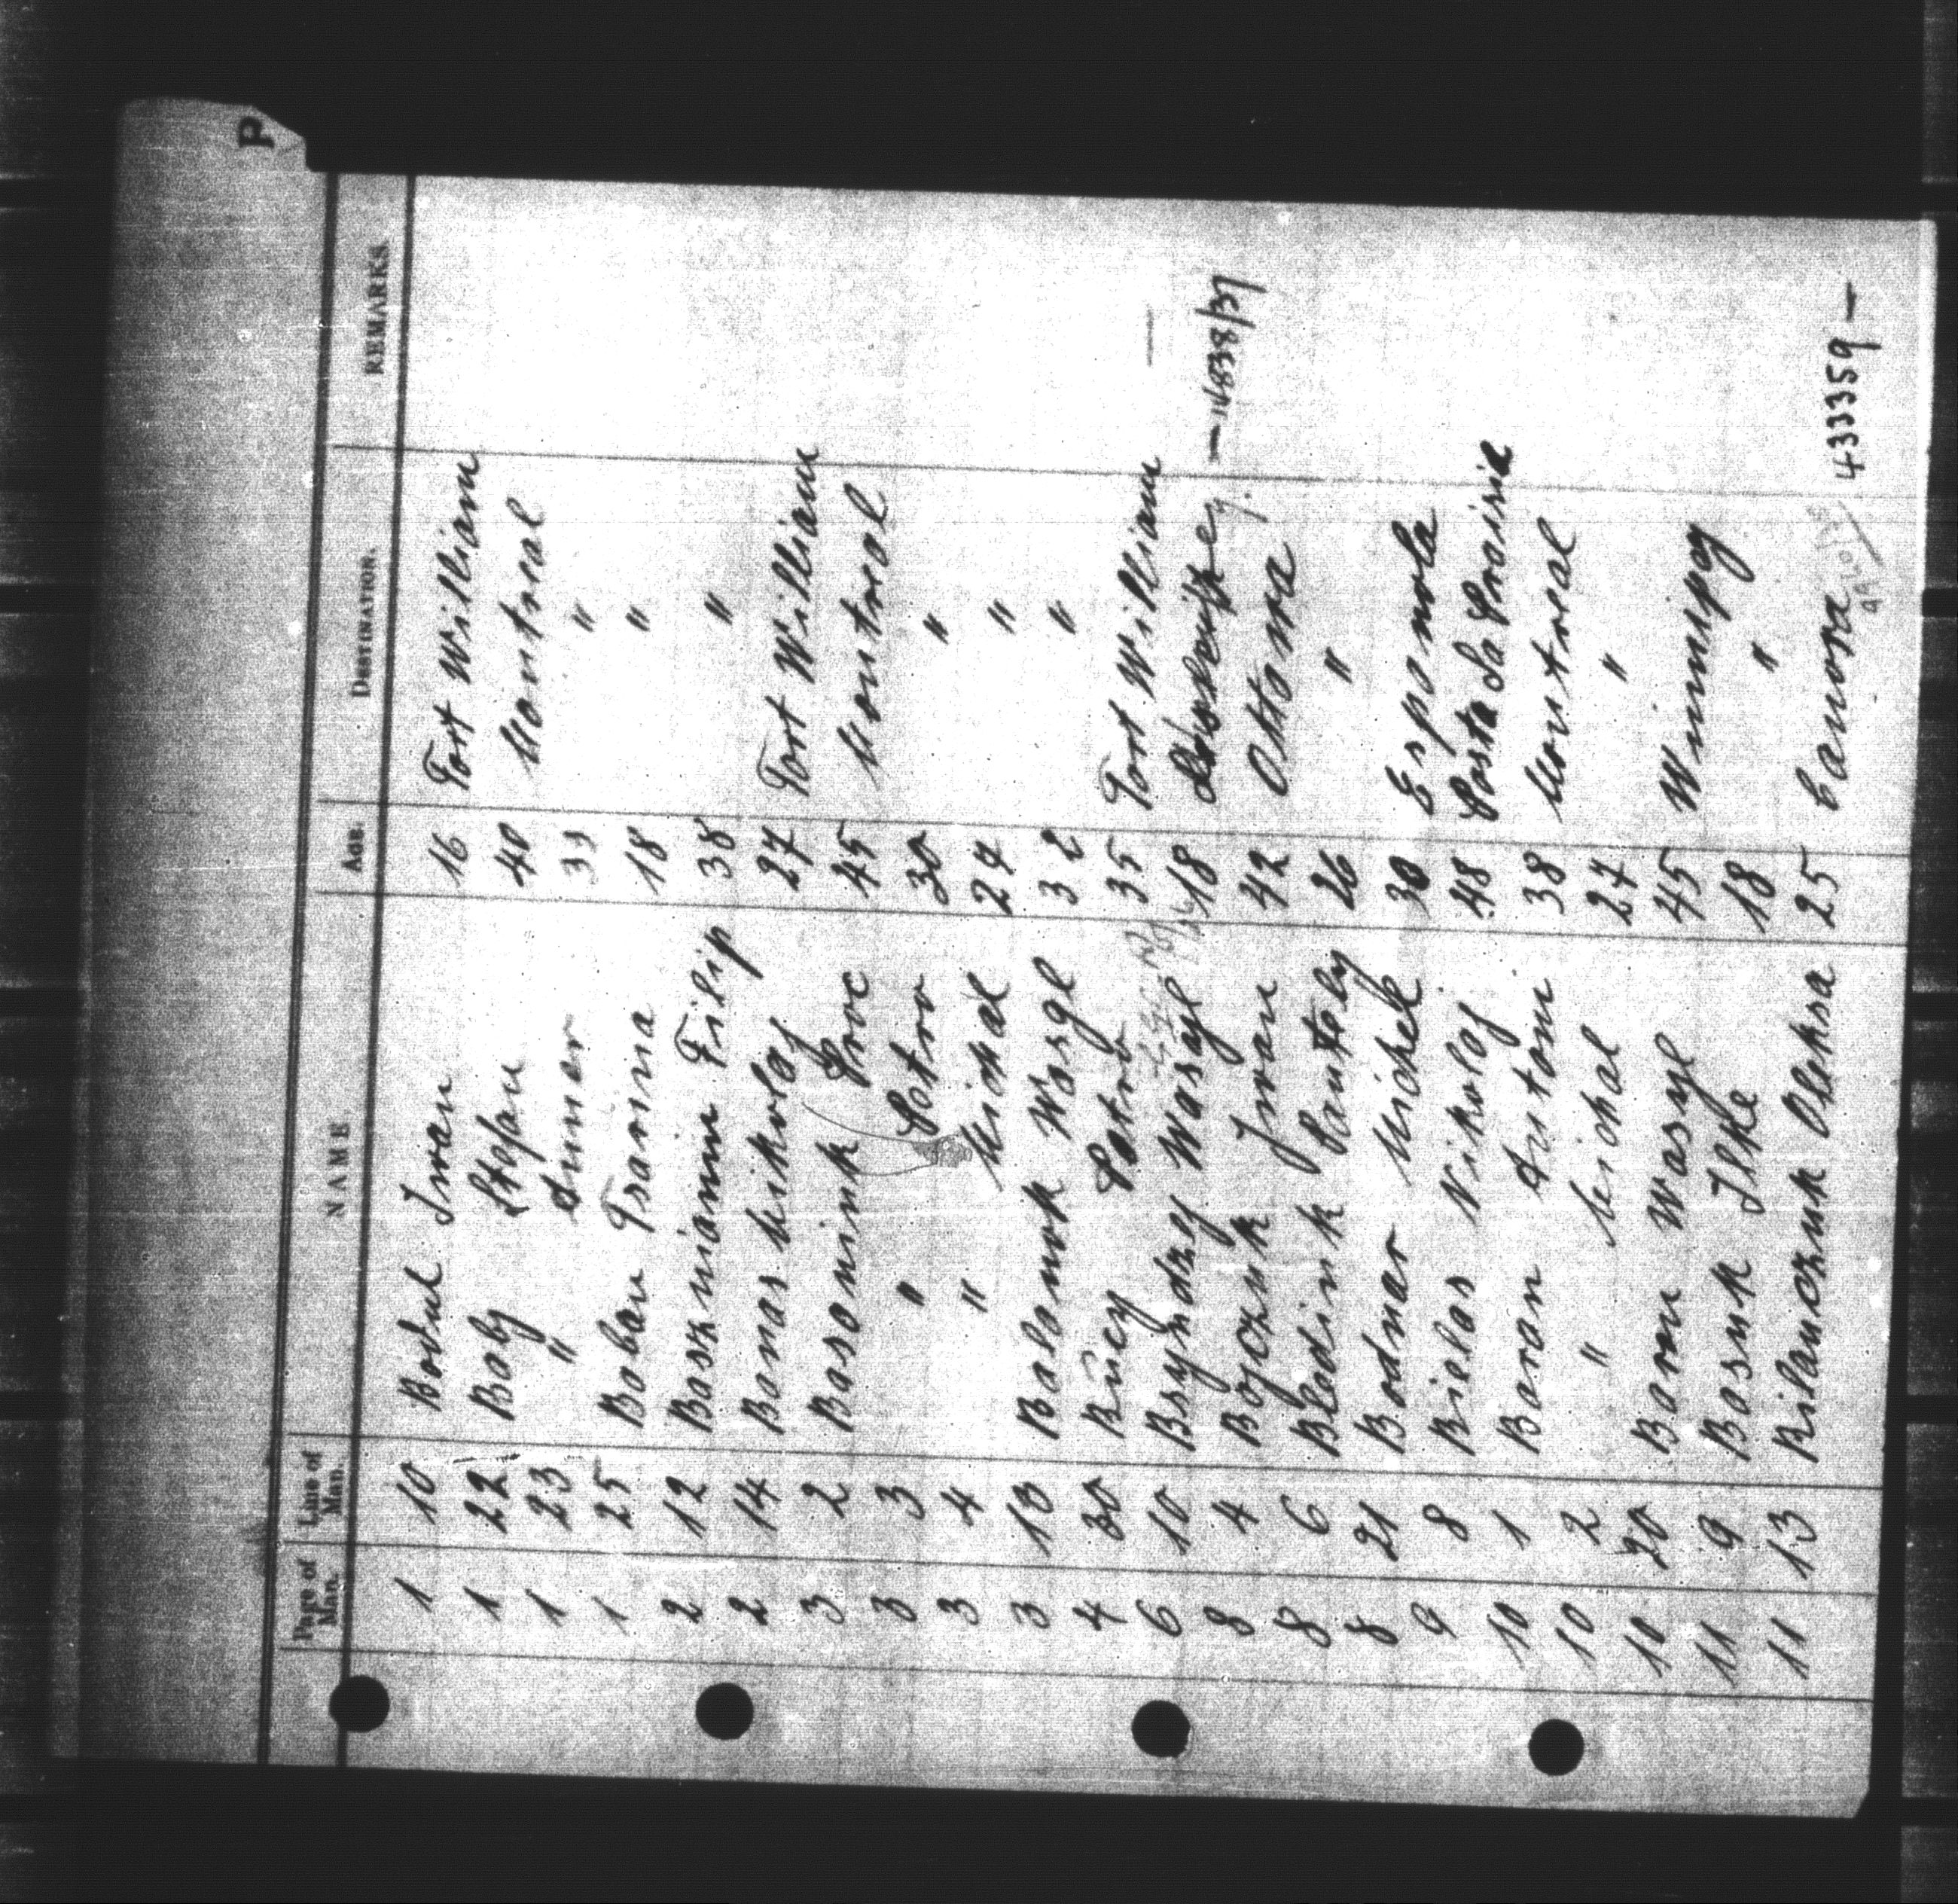 P
Page of Man. Line of Man. NAME AGE. DESTINATION. REMARKS.
1 10 Bodul Iwan 16 Fort William
1 22 Baby Stefan 40 Montreal
1 23 " 33 "
1 25 Boban 18 "
2 12 Filip 38 "
2 14 Bonas Mikolaj 27 Fort William
3 2 Basaniuk Proc 45 Montreal
3 3 " Petro 30 "
3 4 " Michal "
3 13 Balanok Wasyl 32 "
4 30 Bucy Petro 35 Fort William —
6 10 Bryndzej Wasyl 18 — 16838/37
8 4 Bojczuk Iwan 42 Ottowa
8 6 Blediniuk Pantely 26 "
8 21 Bodnar Michel 30 Esponola
9 8 Bielas Nikolaj 48 Porta La Prairie
10 1 Baron Antoni 38 Montreal
10 2 " Michal 27 "
10 20 Baron Wasyl 45 Winnipeg
11 9 Basuk Ilko 18 "
11 13 Bilanczuk Oleksa 25 Canora 433359 —